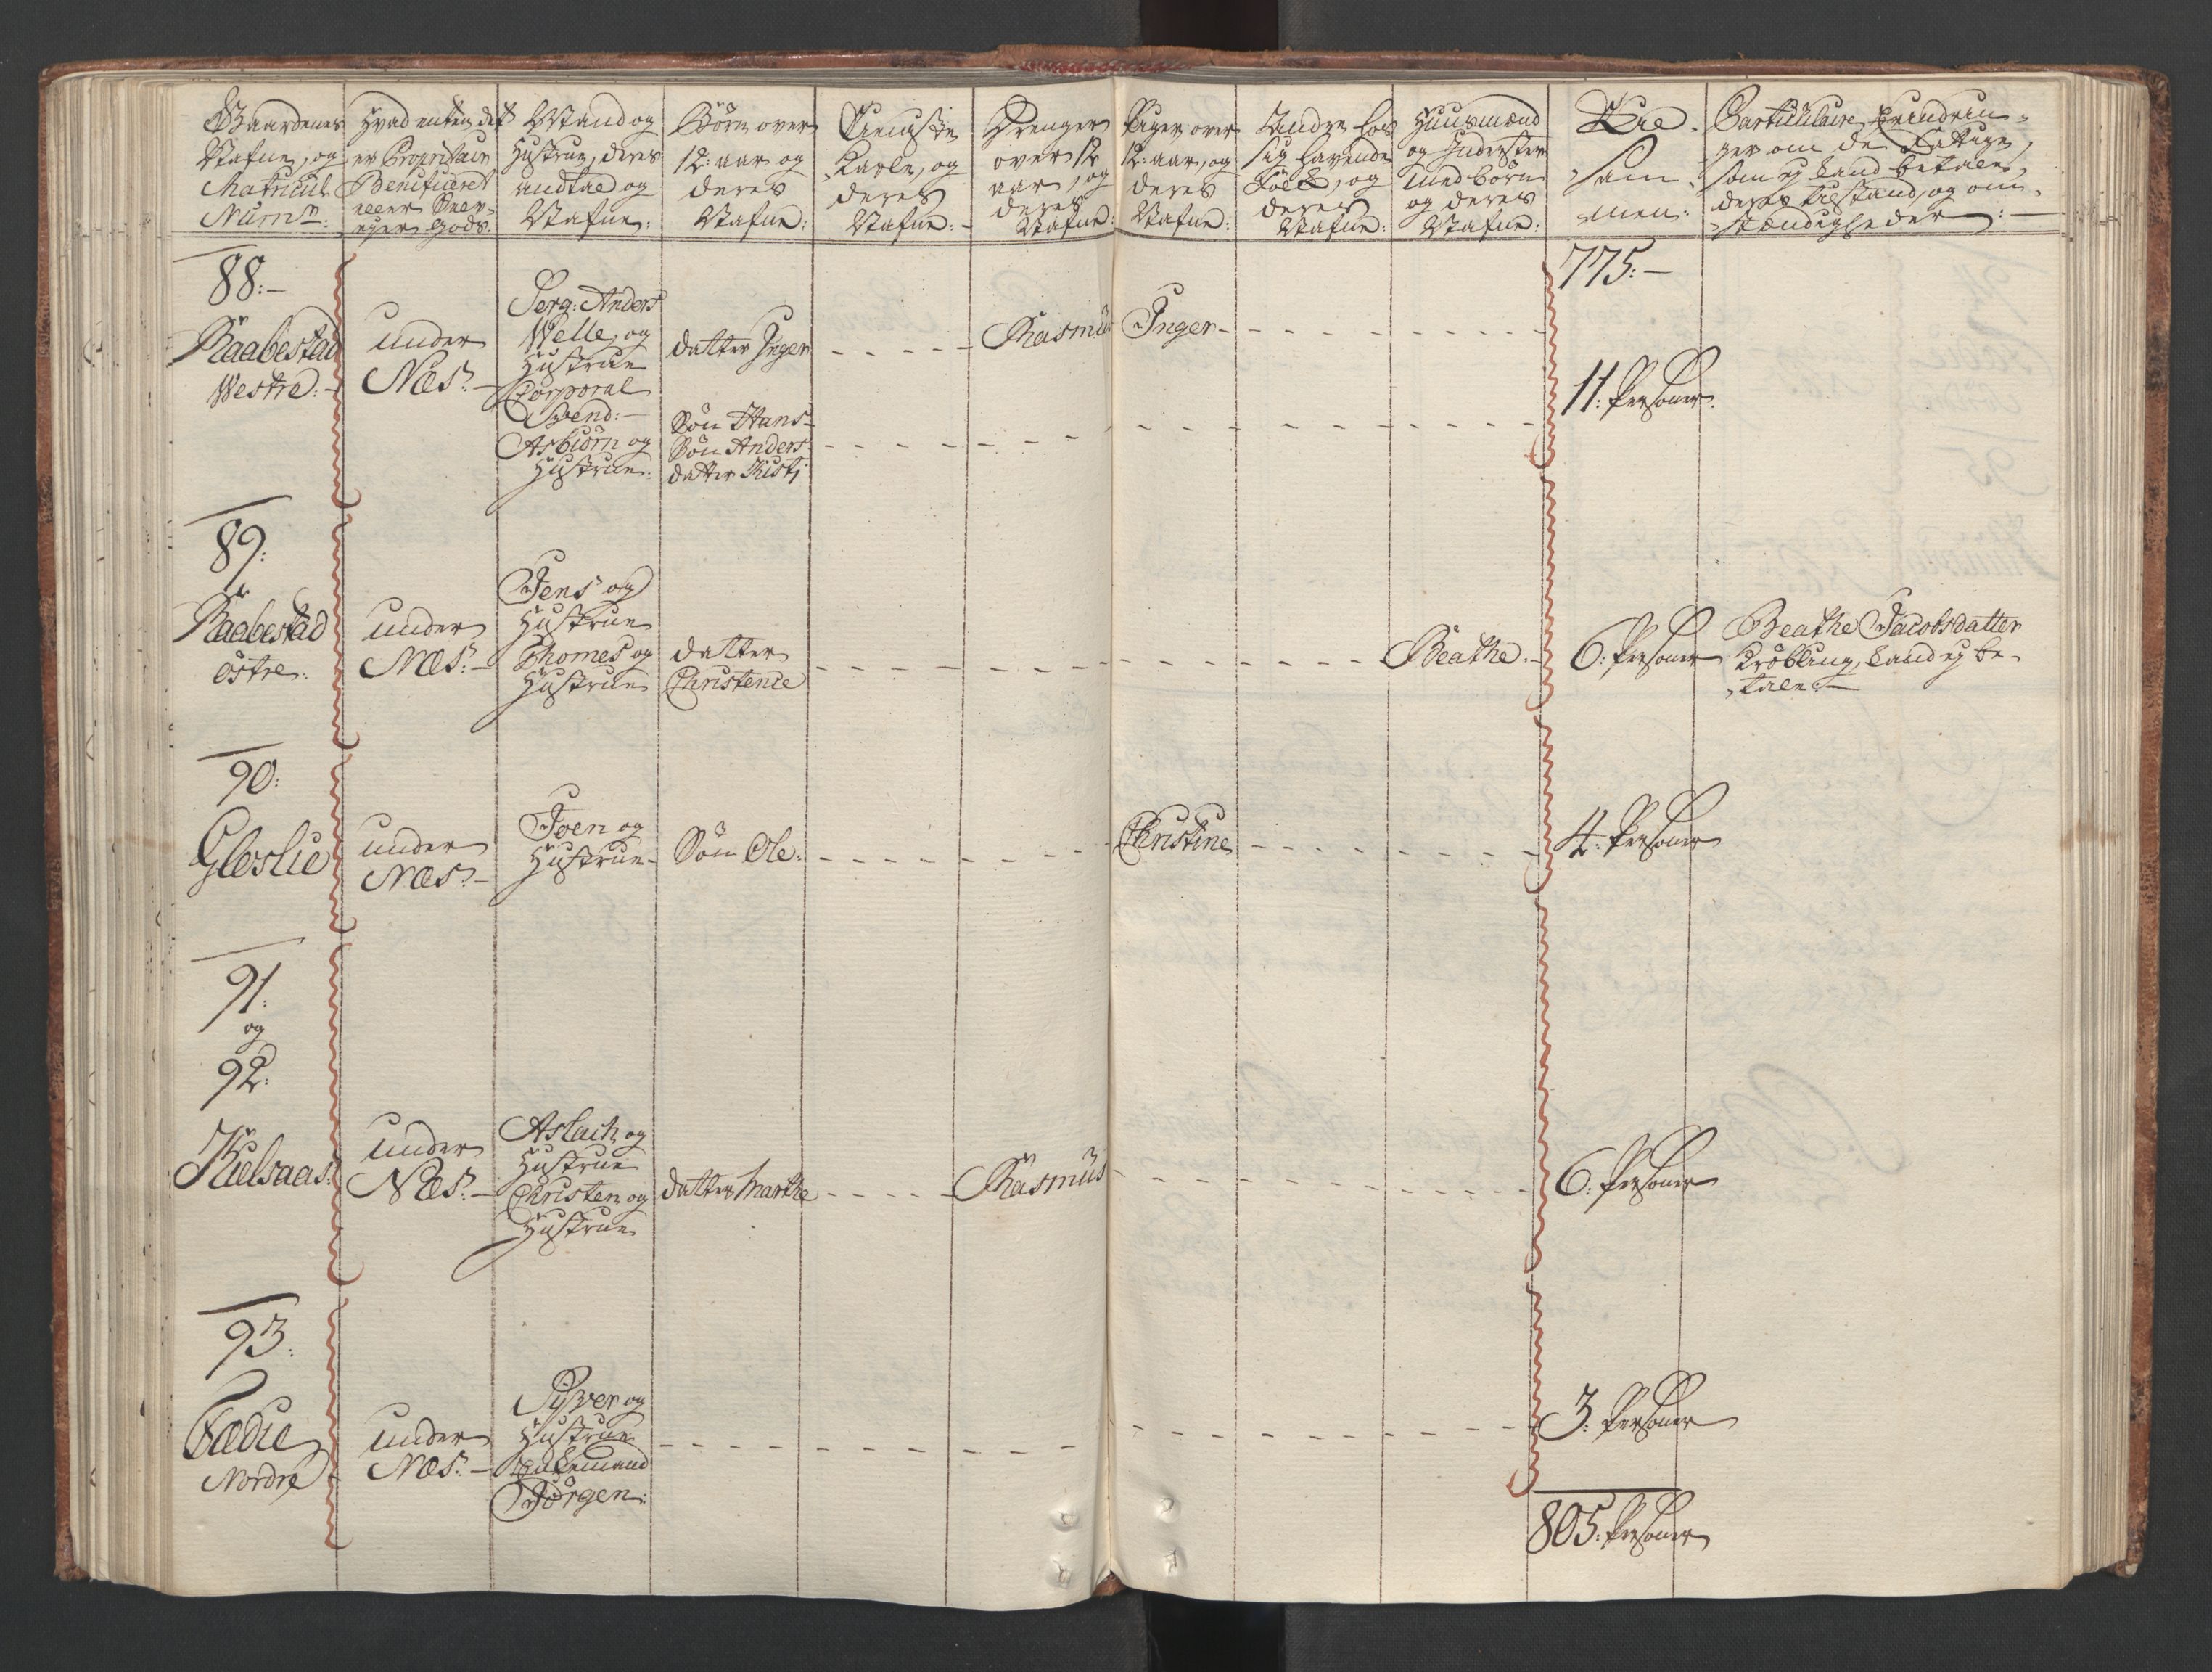 Gaardenes
Nafne, og
Matricul
Numr:
Hvad enten det
er Propritair
Beneficeret
eller Selv-
eyer Gods.
Mand og
Hustrue, deres
andtal og
Nafne:
Børn over
12: aar og
deres
Nafne:
Tieniste
Karle, og
deres
Nafne:
Drenger
over 12
aar, og
deres
Nafne:
Piger over
12: aar, og
deres
Nafne:
Andre hos
sig havende
Folk, og
deres
Nafne:
Huusmænd
og Inderster
med børn
og deres
Nafne:
Til-
sam-
men:
Particulaire Erindrin-
ger om de Fattige,
som ej kand betale,
deres tilstand, og om-
stændigheder:
88:
Raabestad
Westre:
under
Næs:
Serg: Anders
Welle, og
Hustrue
Corporal
Svend:
Asbiörn og
Hustrue:
datter Inger
Søn Hans
Søn Anders
datter Kisti
Rasmus
Inger
775:
11: Personer
89:
Raabestad
östre:
under
Næs:
Jens og
Hustrue
Thomes og
Hustrue
datter
Christence
Beathe
6: Personer
Beathe Jacobsdatter
Krøbling, kand ej be-
tale:
90:
Gleslie
under
Næs:
Joen og
Hustrue
Søn Ole:
Christine
4: Personer
91:
og
92:
Kielsaas:
under
Næs:
Aslach og
Hustrue
Christen og
Hustrue
datter Marthe
Rasmus
6: Personer
93:
Lædre
Nordre
under
Næs:
Syver og
Hustrue
Enkemand
Jörgen:
3: Personer
805: Personer